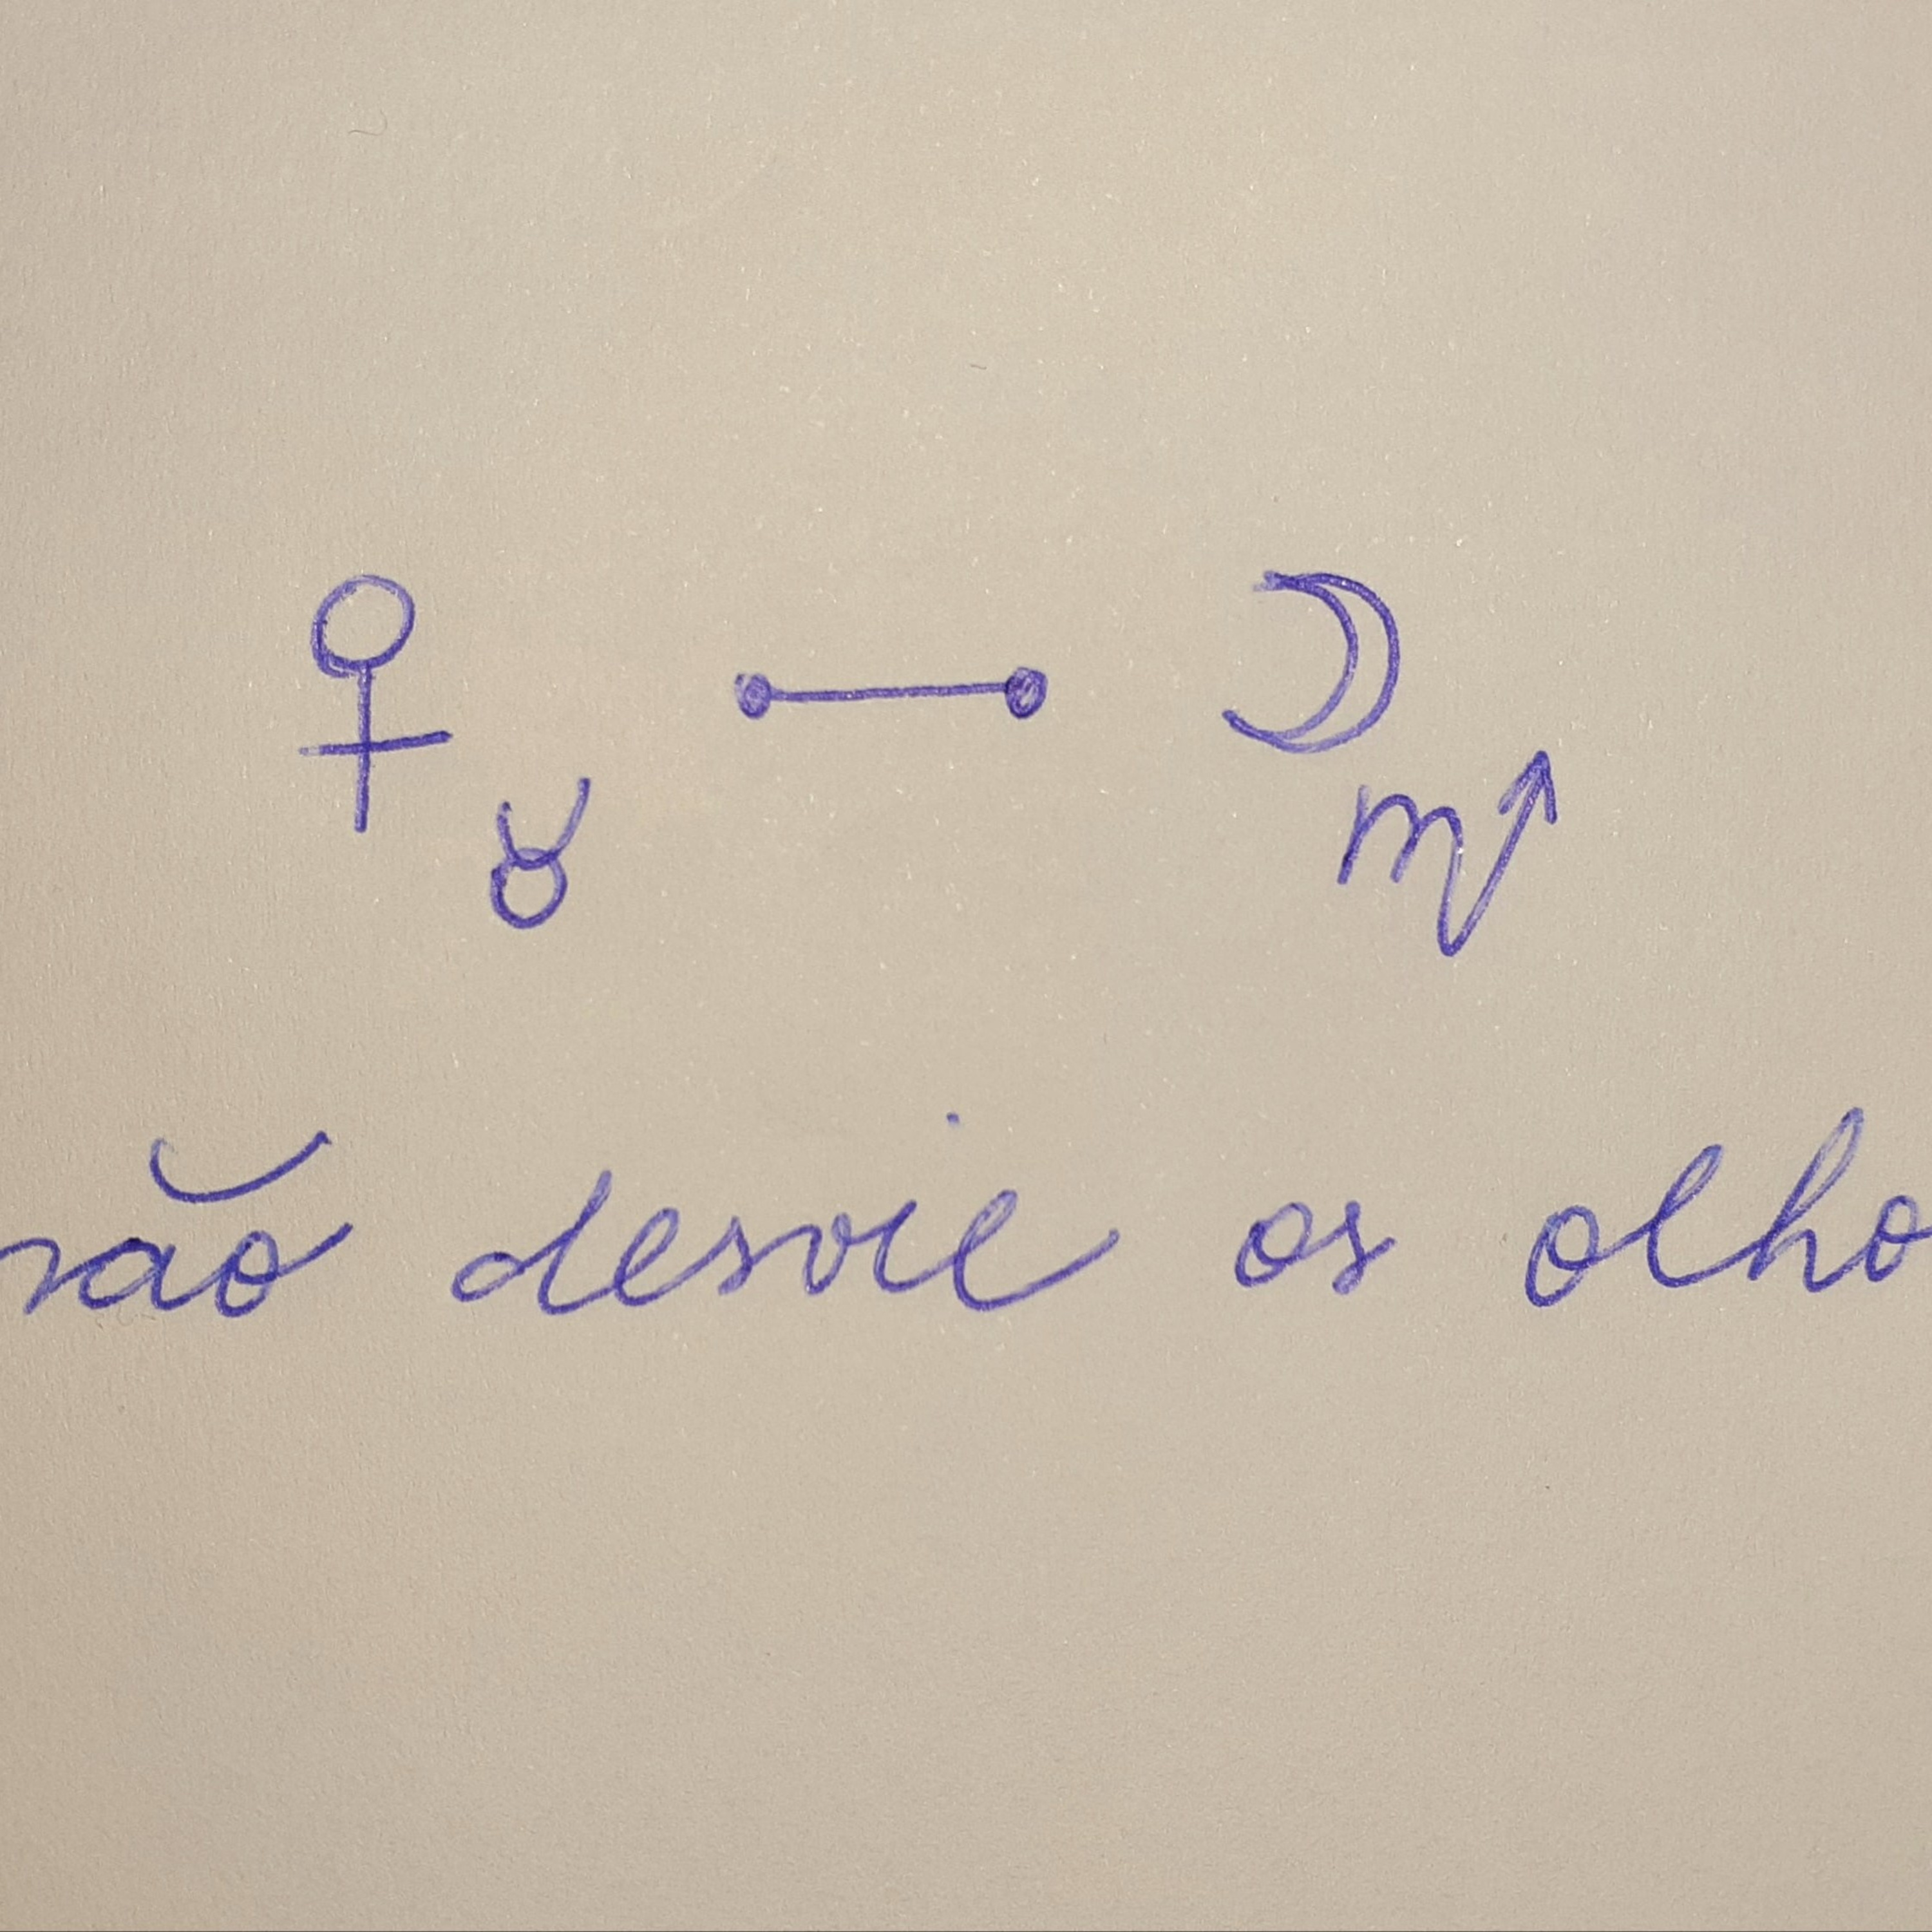 ♀♉ ☍ ☽♏
não desvie os olho